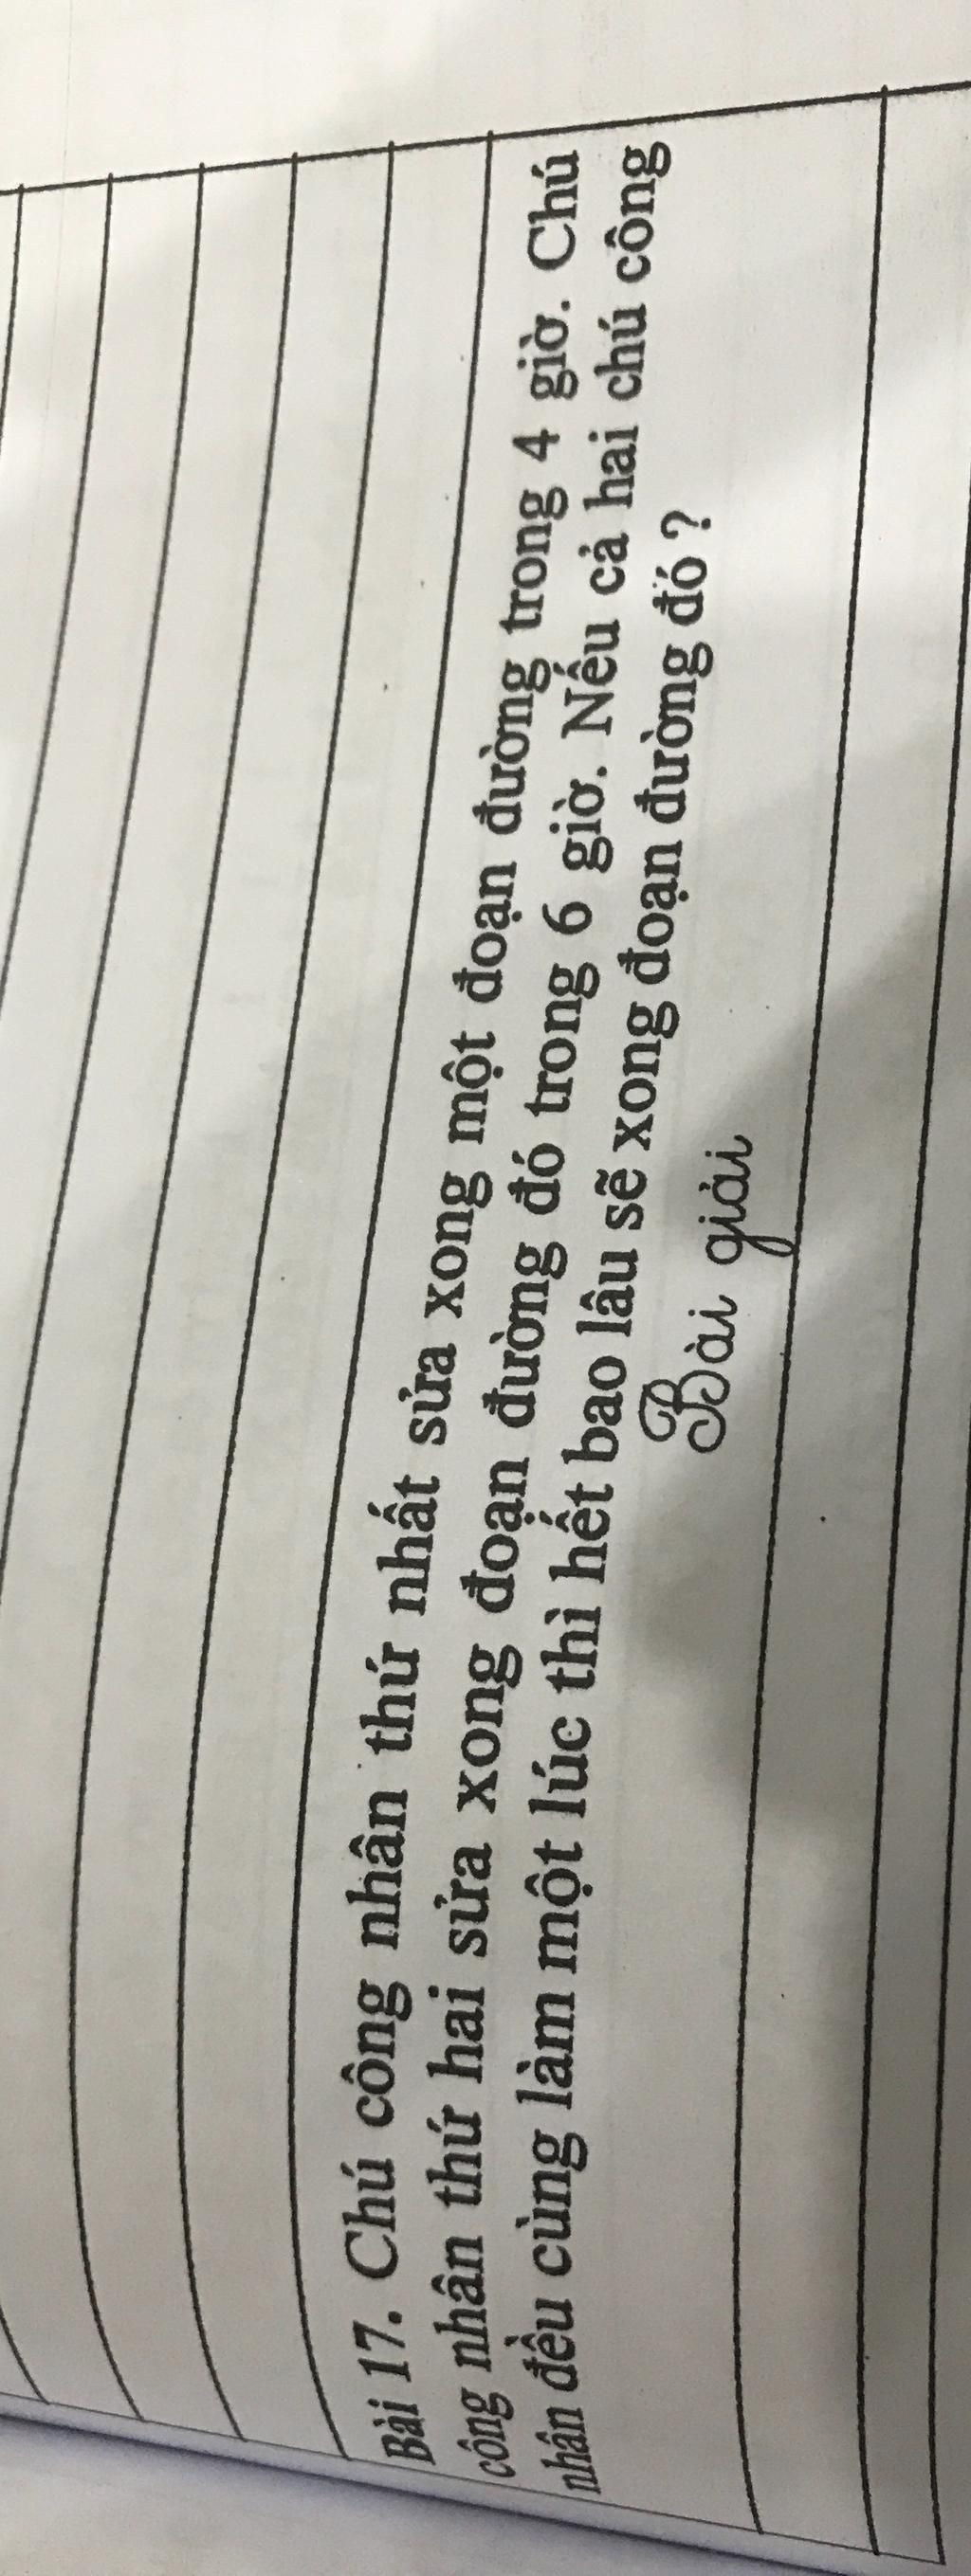 Bài 17. Chú công nhân thứ nhất sửa xong một đoạn đường trong 4 giờ. Chú
công nhân thứ hai sửa xong đoạn đường đó trong 6 giờ. Nếu cả hai chú công
nhân đều cùng làm một lúc thì hết bao lâu sẽ xong đoạn đường đó ?
Bài giải